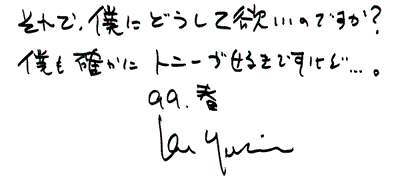 それで、僕にどうして欲しいのですか?
僕も確かにトニーが好きですけど…。
99. 春